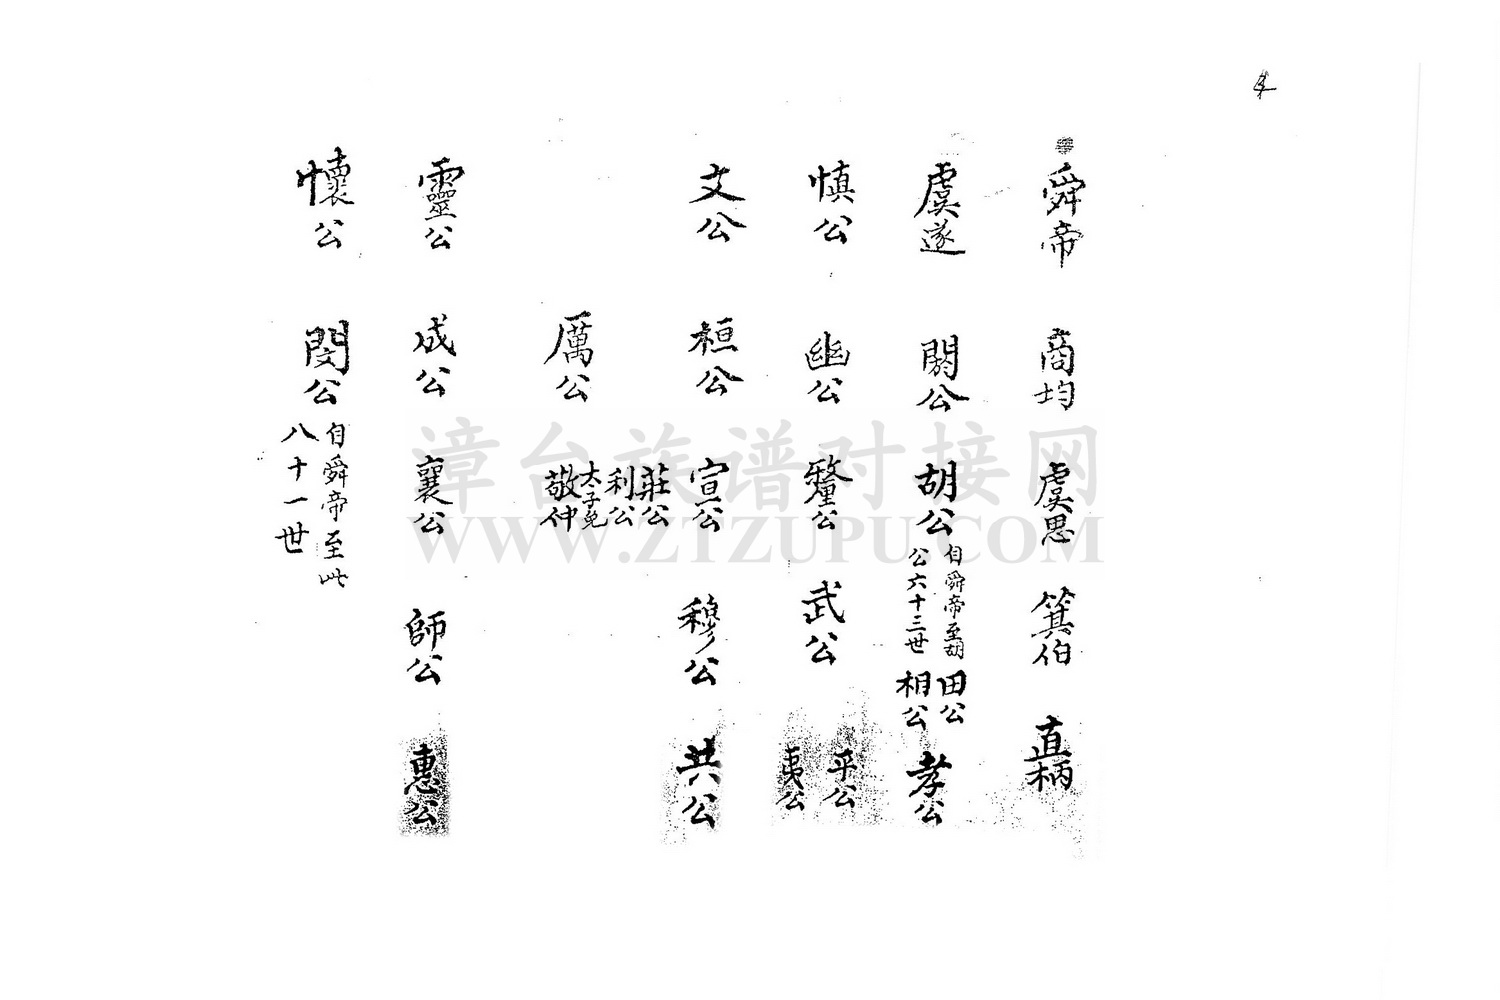 舜帝 商均 虞思 箕伯 直柄
虞遂 閼公 胡公 自舜帝至胡公六十三世 田公 相公 孝公
慎公 幽公 釐公 武公 平公 夷公
文公 桓公 宣公 穆公 共公
厲公 莊公 利公 太子免 敬仲
靈公 成公 襄公 師公 惠公
懷公 閔公 自舜帝至此八十一世
漳台族谱对接网
WWW.ZTZUPU.COM